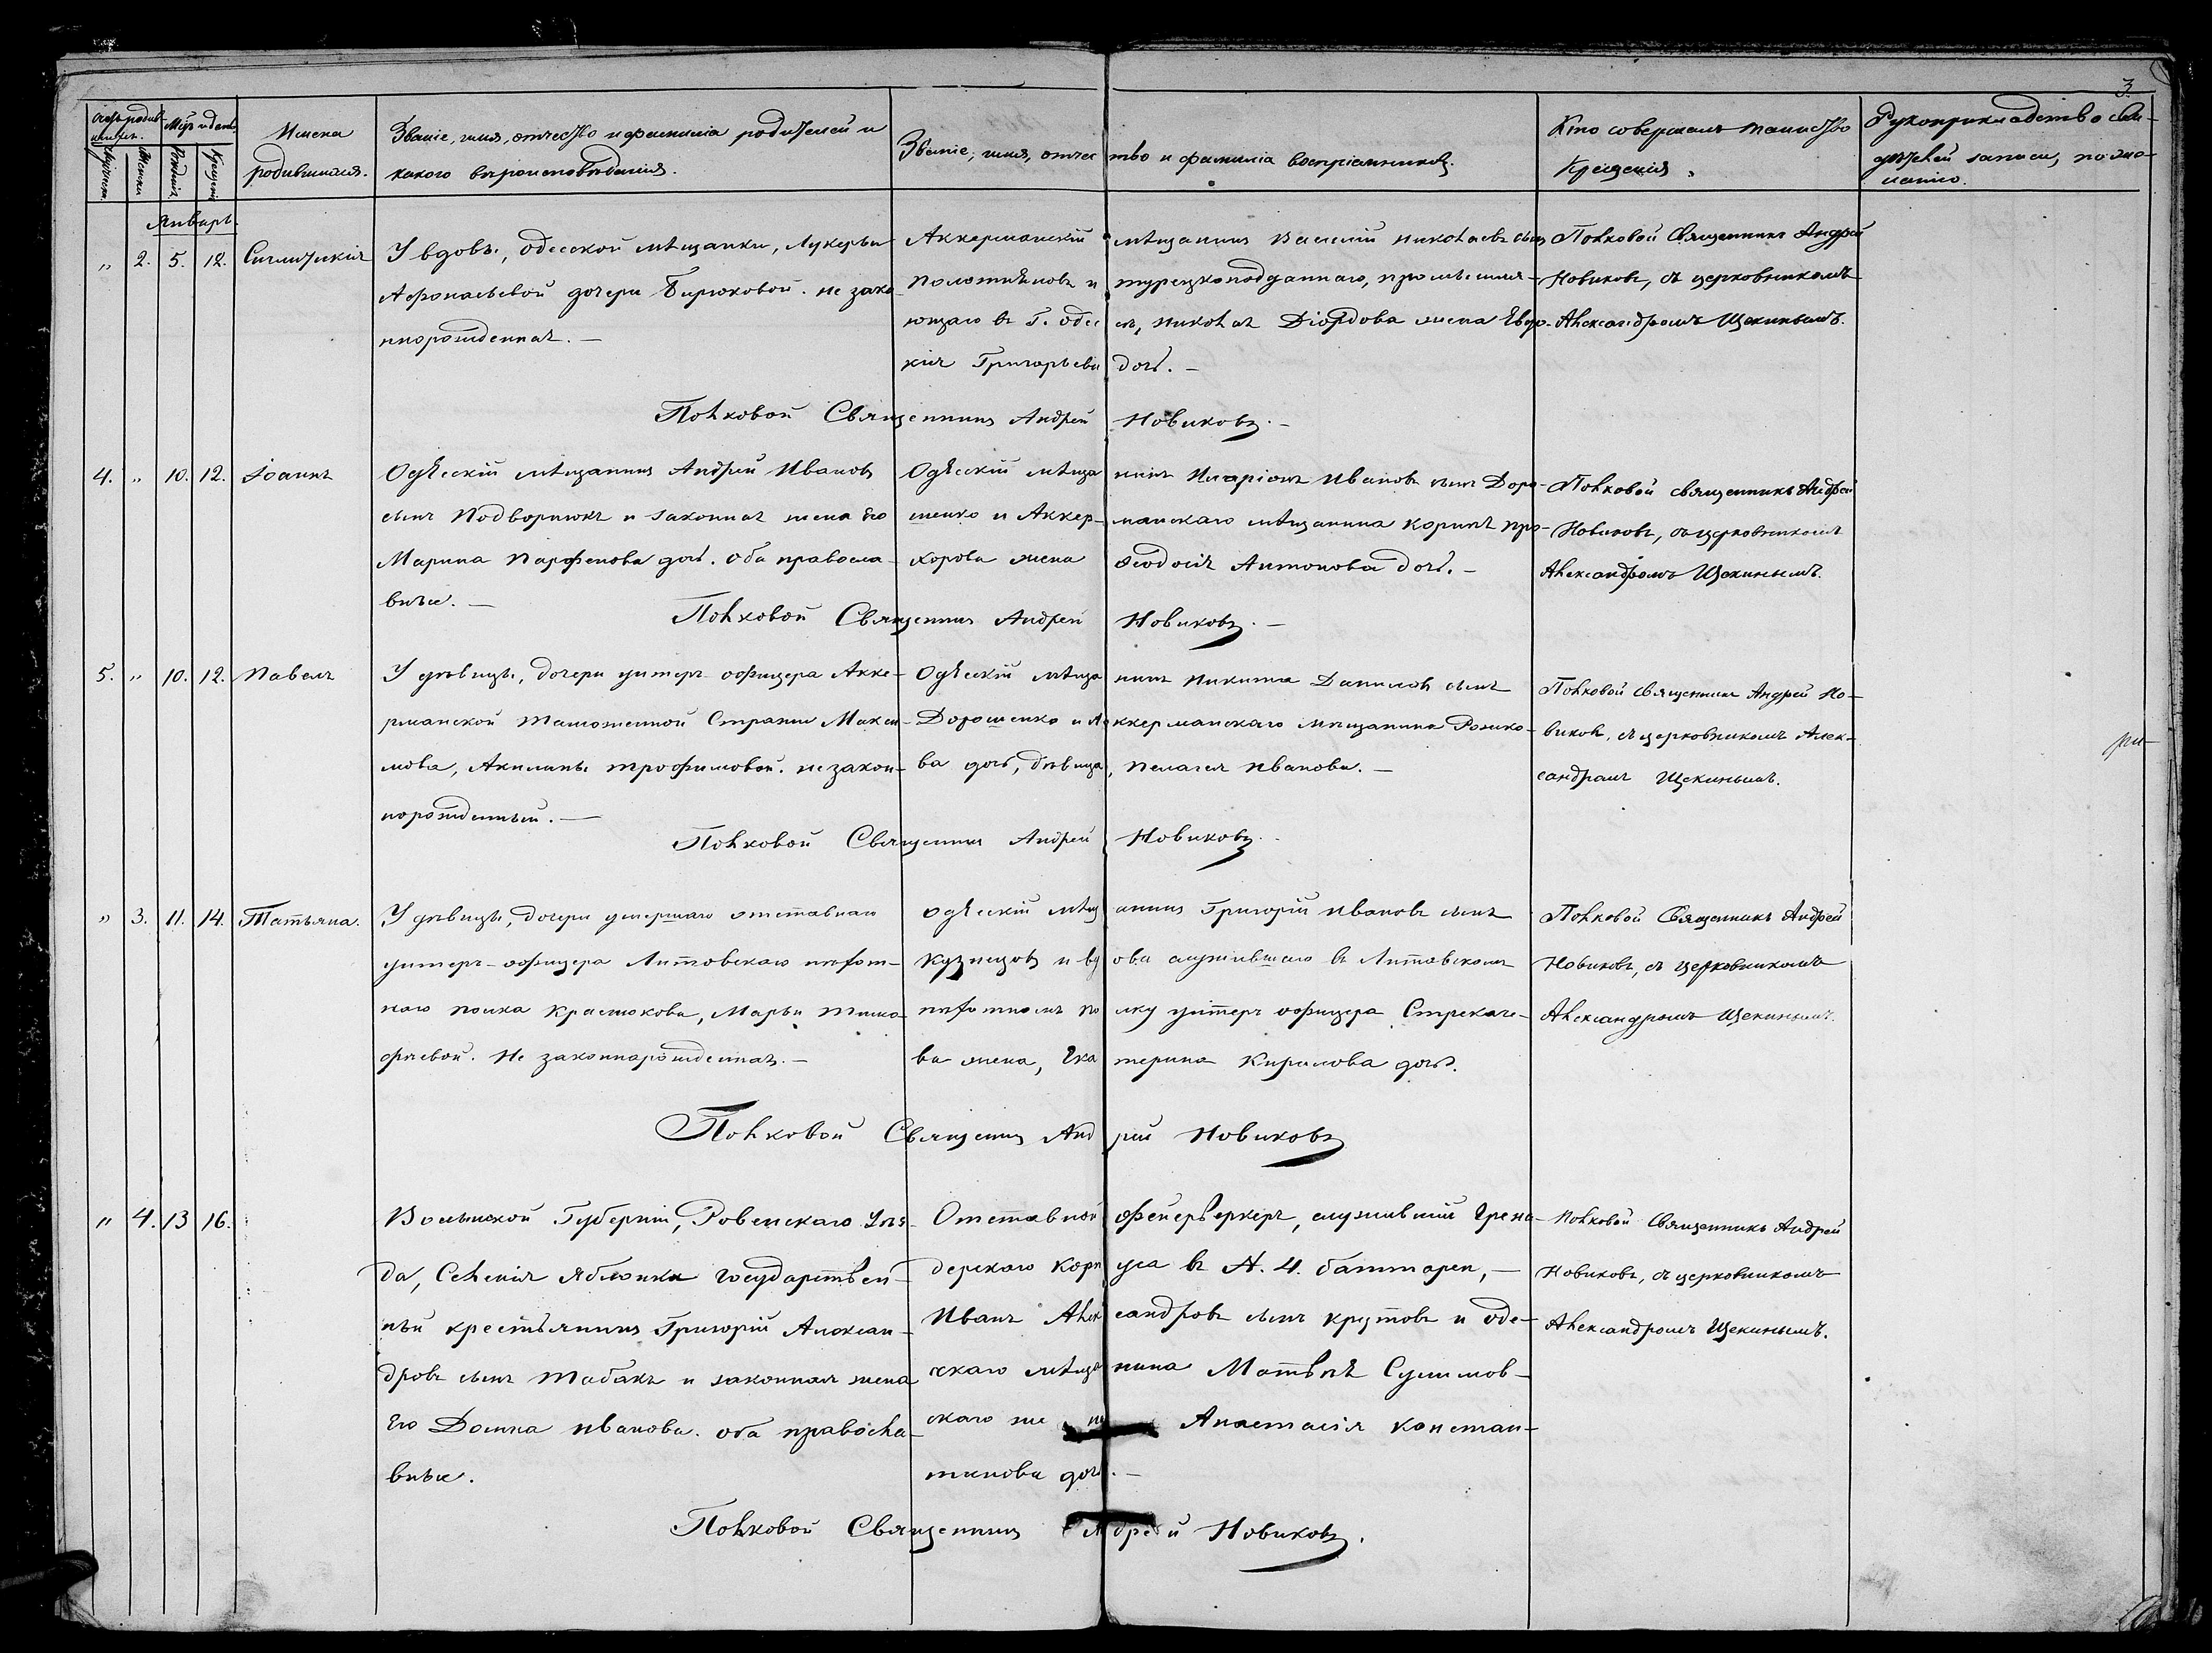 3.
Счетъ родив-
шихся.
Мѣс. и день
Мужеска
Женска
Рожденія
Крещенія
Имена
родившихся.
Званіе, имя, отчество и фамилія родителей и
какого вѣроисповѣданія.
Званіе, имя, отчество и фамилія воспріемниковъ.
Кто совершалъ таинство
Крещенія.
Рукоприкладство сви-
дѣтелей записи, по же-
ланію.
Январь
„ 2. 5. 12. Сигклитикія
У вдовы, одесской мѣщанки, Лукерьи
Афонасьевой дочери Бирюковой. не зако-
ннорожденная. —
Аккерманскій мѣщанинъ Василій Николаевъ сынъ
Полотняновъ и турецкоподданнаго,
ющаго въ Г. Одес съ, Николая Діордова жена Евдо-
кія Григорьева дочь. —
Полковой Священникъ Андрей
Новиковъ, съ церковникомъ
Александромъ Щекинымъ.
Полковой Священникъ Андрей Новиковъ. —
4. „ 10. 12. Іоаннъ
Одесскій мѣщанинъ Андрей Ивановъ
сынъ Подворнюкъ и законная жена его
Марина Парфенова дочь. оба правосла-
вные. —
Одесскій мѣщанинъ Иларіонъ Ивановъ сынъ Доро-
шенко и Аккерманскаго мѣщанина Корнея Про-
хорова жена Ѳеодосія Антонова дочь. —
Полковой священникъ Андрей
Новиковъ, съ церковникомъ
Александромъ Щекинымъ.
Полковой Священникъ Андрей Новиковъ. —
5. „ 10. 12. Павелъ
У дѣвицы, дочери унтеръ-офицера Акке-
рманской таможенной Стражи Макси-
мова, Акилины Трофимовой. незакон-
норожденный. —
Одесскій мѣщанинъ Никита Даниловъ сынъ
Дорошенко и Аккерманскаго мѣщанина
ва дочь, дѣвица, Пелагея Иванова. —
Полковой Священникъ Андрей Но-
виковъ, съ церковникомъ Алек-
сандромъ Щекинымъ.
Полковой Священникъ Андрей Новиковъ.
„ 3. 11. 14. Татьяна.
У дѣвицы, дочери умершаго отставнаго
унтеръ-офицера Литовскаго пѣхот-
наго полка Крастюкова, Марьи Тимо-
фѣевой. Не законнорожденная. —
Одесскій мѣщанинъ Григорій Ивановъ сынъ
Кузнецовъ и вдова служившаго въ Литовскомъ
пѣхотномъ полку унтеръ офицера Стрекаче-
ва жена, Екатерина Кирилова дочь.
Полковой Священникъ Андрей
Новиковъ, съ церковникомъ
Александромъ Щекинымъ.
Полковой Священникъ Андрей Новиковъ
„ 4. 13 16.
Волынской Губерніи, Ровенскаго Уѣз-
да, Селенія Яблонки государствен-
ный крестьянинъ Григорій Алексан-
дровъ сынъ Табакъ и законная жена
его Домна Иванова. оба правосла-
вные.
Отставной фейерверкеръ, служившій Грена-
дерскаго Корпуса въ № 4. баттареи, —
Иванъ Александровъ сынъ Крутовъ и оде-
сскаго мѣщанина Матвѣя Сулимов-
скаго же Анастасія Констан-
тинова дочь. —
Полковой Священникъ Андрей
Новиковъ, съ церковникомъ
Александромъ Щекинымъ.
Полковой Священникъ Андрей Новиковъ.